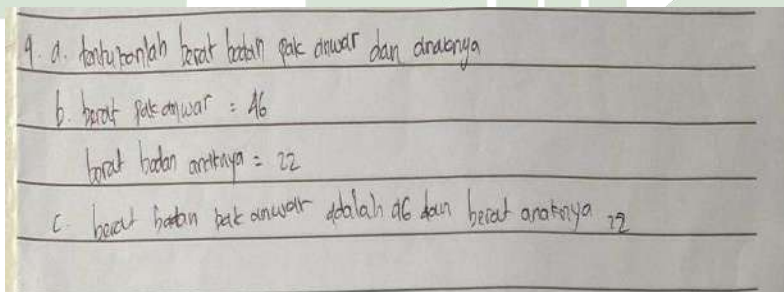 4. a. tentukanlah berat badan pak anwar dan anaknya
b. berat pak anwar = 46
berat badan anaknya = 22
c. berat badan pak anwar adalah 46 dan berat anaknya 22